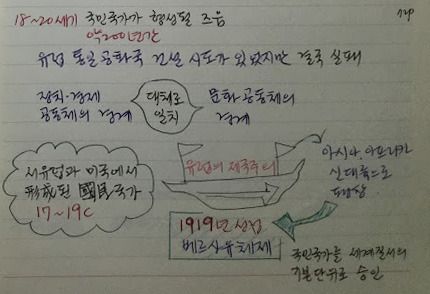 18~20세기 국민국가가 형성될 즈음
약200년간
유럽 통일 공화국 건설 시도가 있었지만 결국 실패
정치·경제
공동체의 경계
대체로
일치
문화 공동체의
경계
서유럽과 미국에서
形成된 國民국가
17~19C
유럽의 제국주의
아시아, 아프리카
식민대륙으로
팽창
1919년 성립
베르사유체제
국민국가를 세계질서의
기본단위로 승인